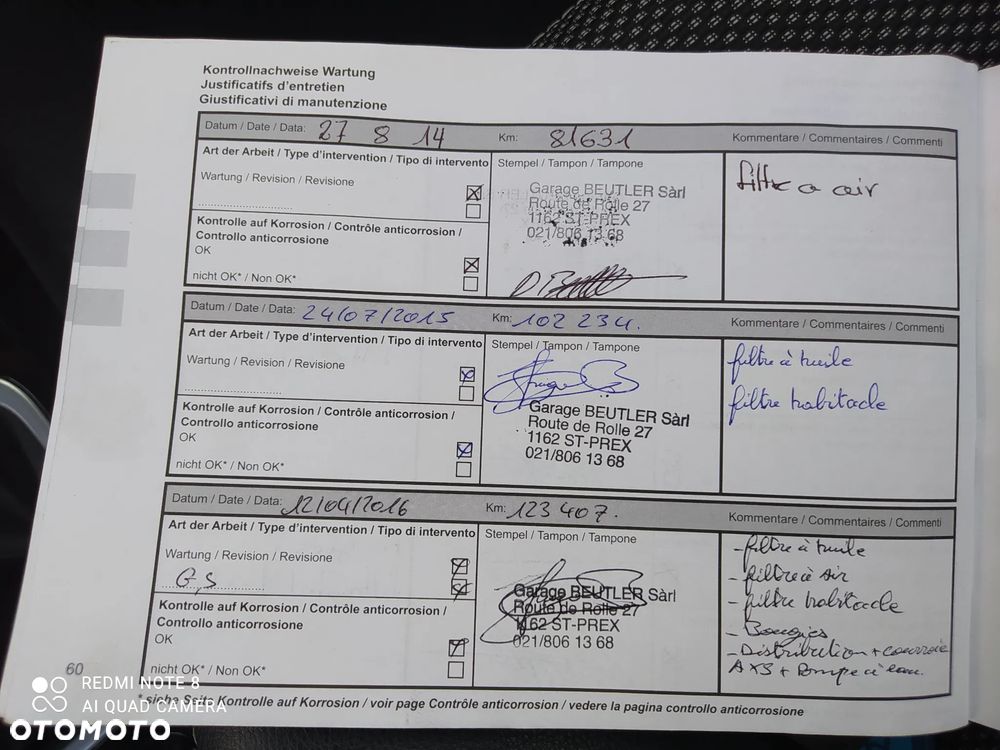 Kontrollnachweise Wartung
Justificatifs d'entretien
Giustificativi di manutenzione
Datum / Date / Data: 27 8 14 Km: 81631 Kommentare / Commentaires / Commenti
Art der Arbeit / Type d'intervention / Tipo di intervento
Stempel / Tampon / Tampone
filtre a air
Wartung / Revision / Revisione
Garage BEUTLER Sàrl
Route de Rolle 27
1162 ST-PREX
021/806 13 68
Kontrolle auf Korrosion / Contrôle anticorrosion /
Controllo anticorrosione
OK
nicht OK* / Non OK*
Datum / Date / Data: 24/07/2015 Km: 102 234. Kommentare / Commentaires / Commenti
Art der Arbeit / Type d'intervention / Tipo di intervento
Stempel / Tampon / Tampone
filtre à huile
Wartung / Revision / Revisione
filtre habitacle
Garage BEUTLER Sàrl
Route de Rolle 27
1162 ST-PREX
021/806 13 68
Kontrolle auf Korrosion / Contrôle anticorrosion /
Controllo anticorrosione
OK
nicht OK* / Non OK*
Datum / Date / Data: 12/04/2016 Km: 123 407. Kommentare / Commentaires / Commenti
Art der Arbeit / Type d'intervention / Tipo di intervento
Stempel / Tampon / Tampone
- filtre à huile
- filtre à Air
- filtre habitacle
- Bougies
- Distribution + courroie
AXS + Pompe à eau.
Wartung / Revision / Revisione
G,S
Garage BEUTLER Sàrl
Route de Rolle 27
1162 ST-PREX
021/806 13 68
Kontrolle auf Korrosion / Contrôle anticorrosion /
Controllo anticorrosione
OK
nicht OK* / Non OK*
60
* siehe Seite Kontrolle auf Korrosion / voir page Contrôle anticorrosion / vedere la pagina controllo anticorrosione
REDMI NOTE 8
AI QUAD CAMERA
OTOMOTO